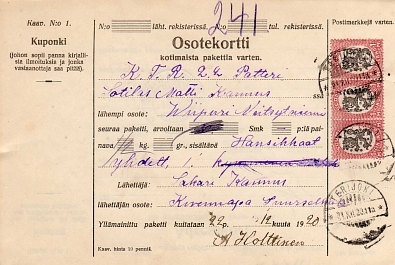 Kaav. N:o 1.
Kuponki
(johon sopii panna kirjallisia ilmoituksia ja jonka vastaanottaja saa pitää).
N:o lähl. rekisterissä. N:o tul. rekisterissä.
241
Postimerkkejä varten.
Osotekortti
kotimaista pakettia varten.
K.T.R. 2 Patteri
Matti Kaunus
ss.
lähempi osote: Wiipuri Neitsytniemi
seuraa paketti, arvoltaan Smk p:lä painava
kg. gr., sisältänä Hansikkaat
yhdet 1.
Lähettäjä: Sakari Kaunus
Lähettäjä: Kivennapa
Yllämainittu paketti kuitataan 22 p. 12 kuuta 1920
A Holttinen
Kaav. hinta 10 penniä.
TERIJOKI